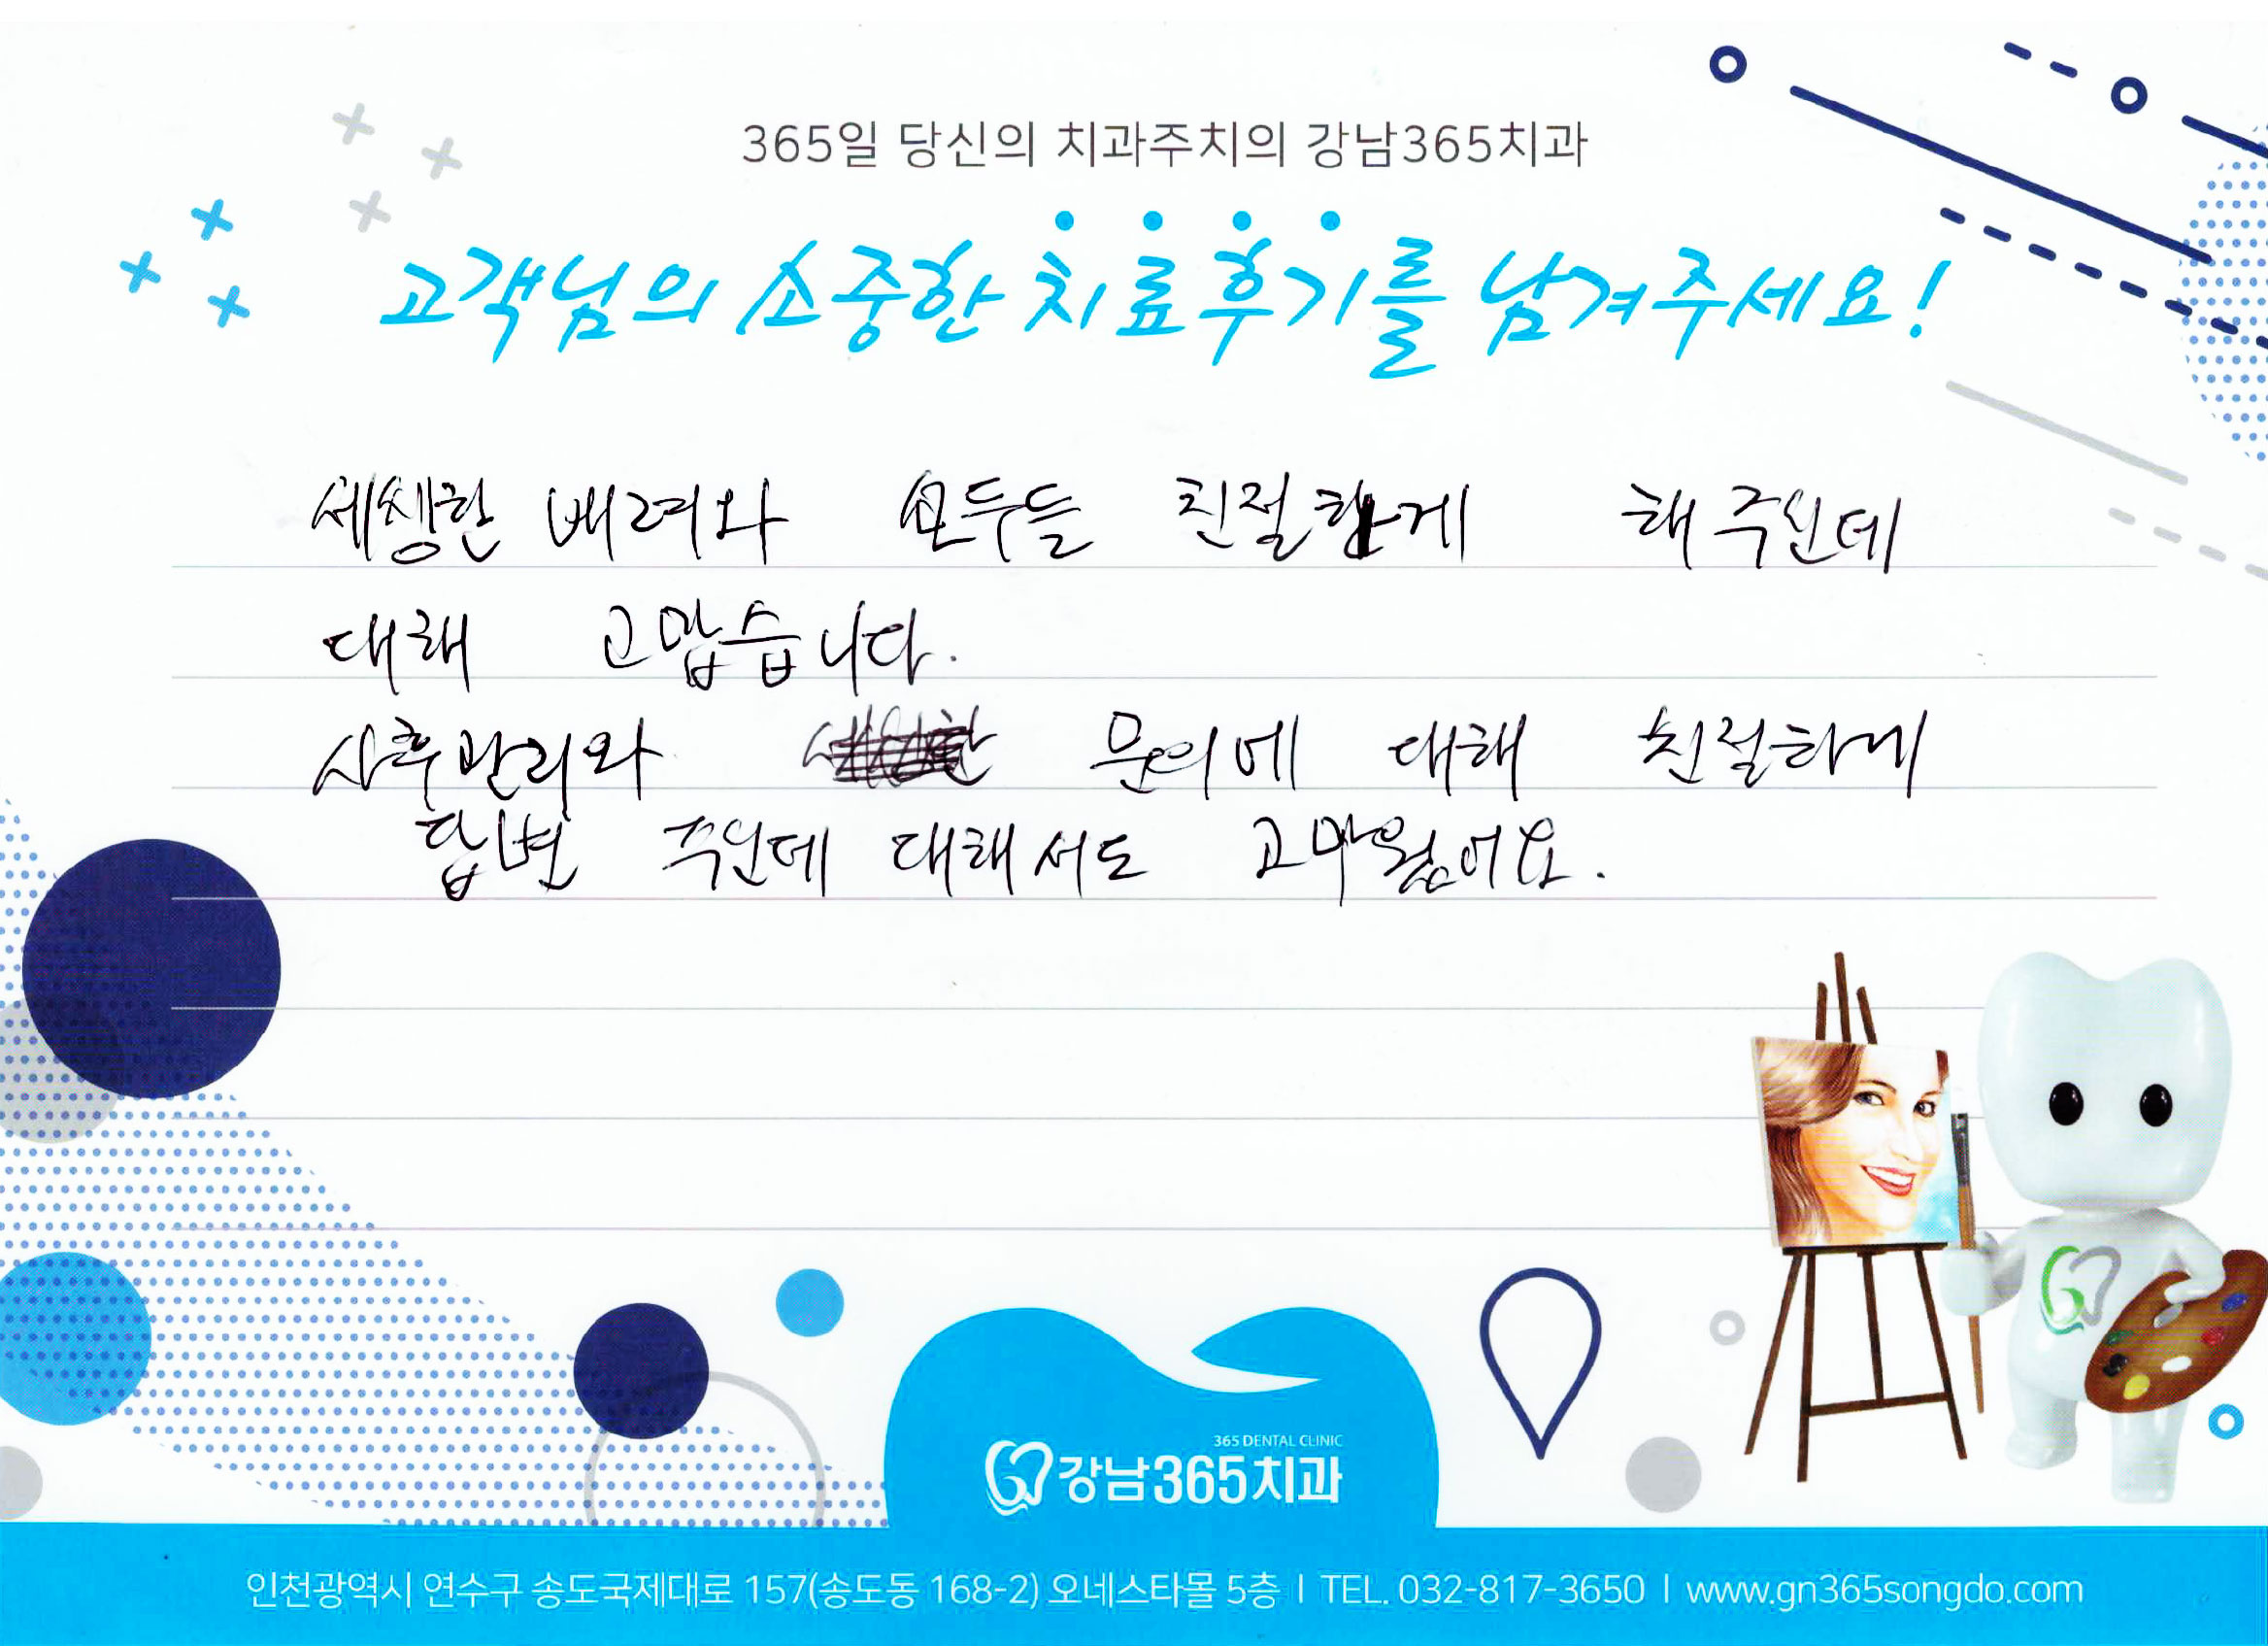 365일 당신의 치과주치의 강남365치과
고객님의 소중한 치료후기를 남겨주세요!
세심한 배려와 모두들 친절하게 해 주신데
대해 고맙습니다.
사후관리와 문의에 대해 친절하게
답변 주신데 대해서도 고마웠어요.
365 DENTAL CLINIC
강남365치과
인천광역시 연수구 송도국제대로 157(송도동 168-2) 오네스타몰 5층 I TEL. 032-817-3650 I www.gn365songdo.com